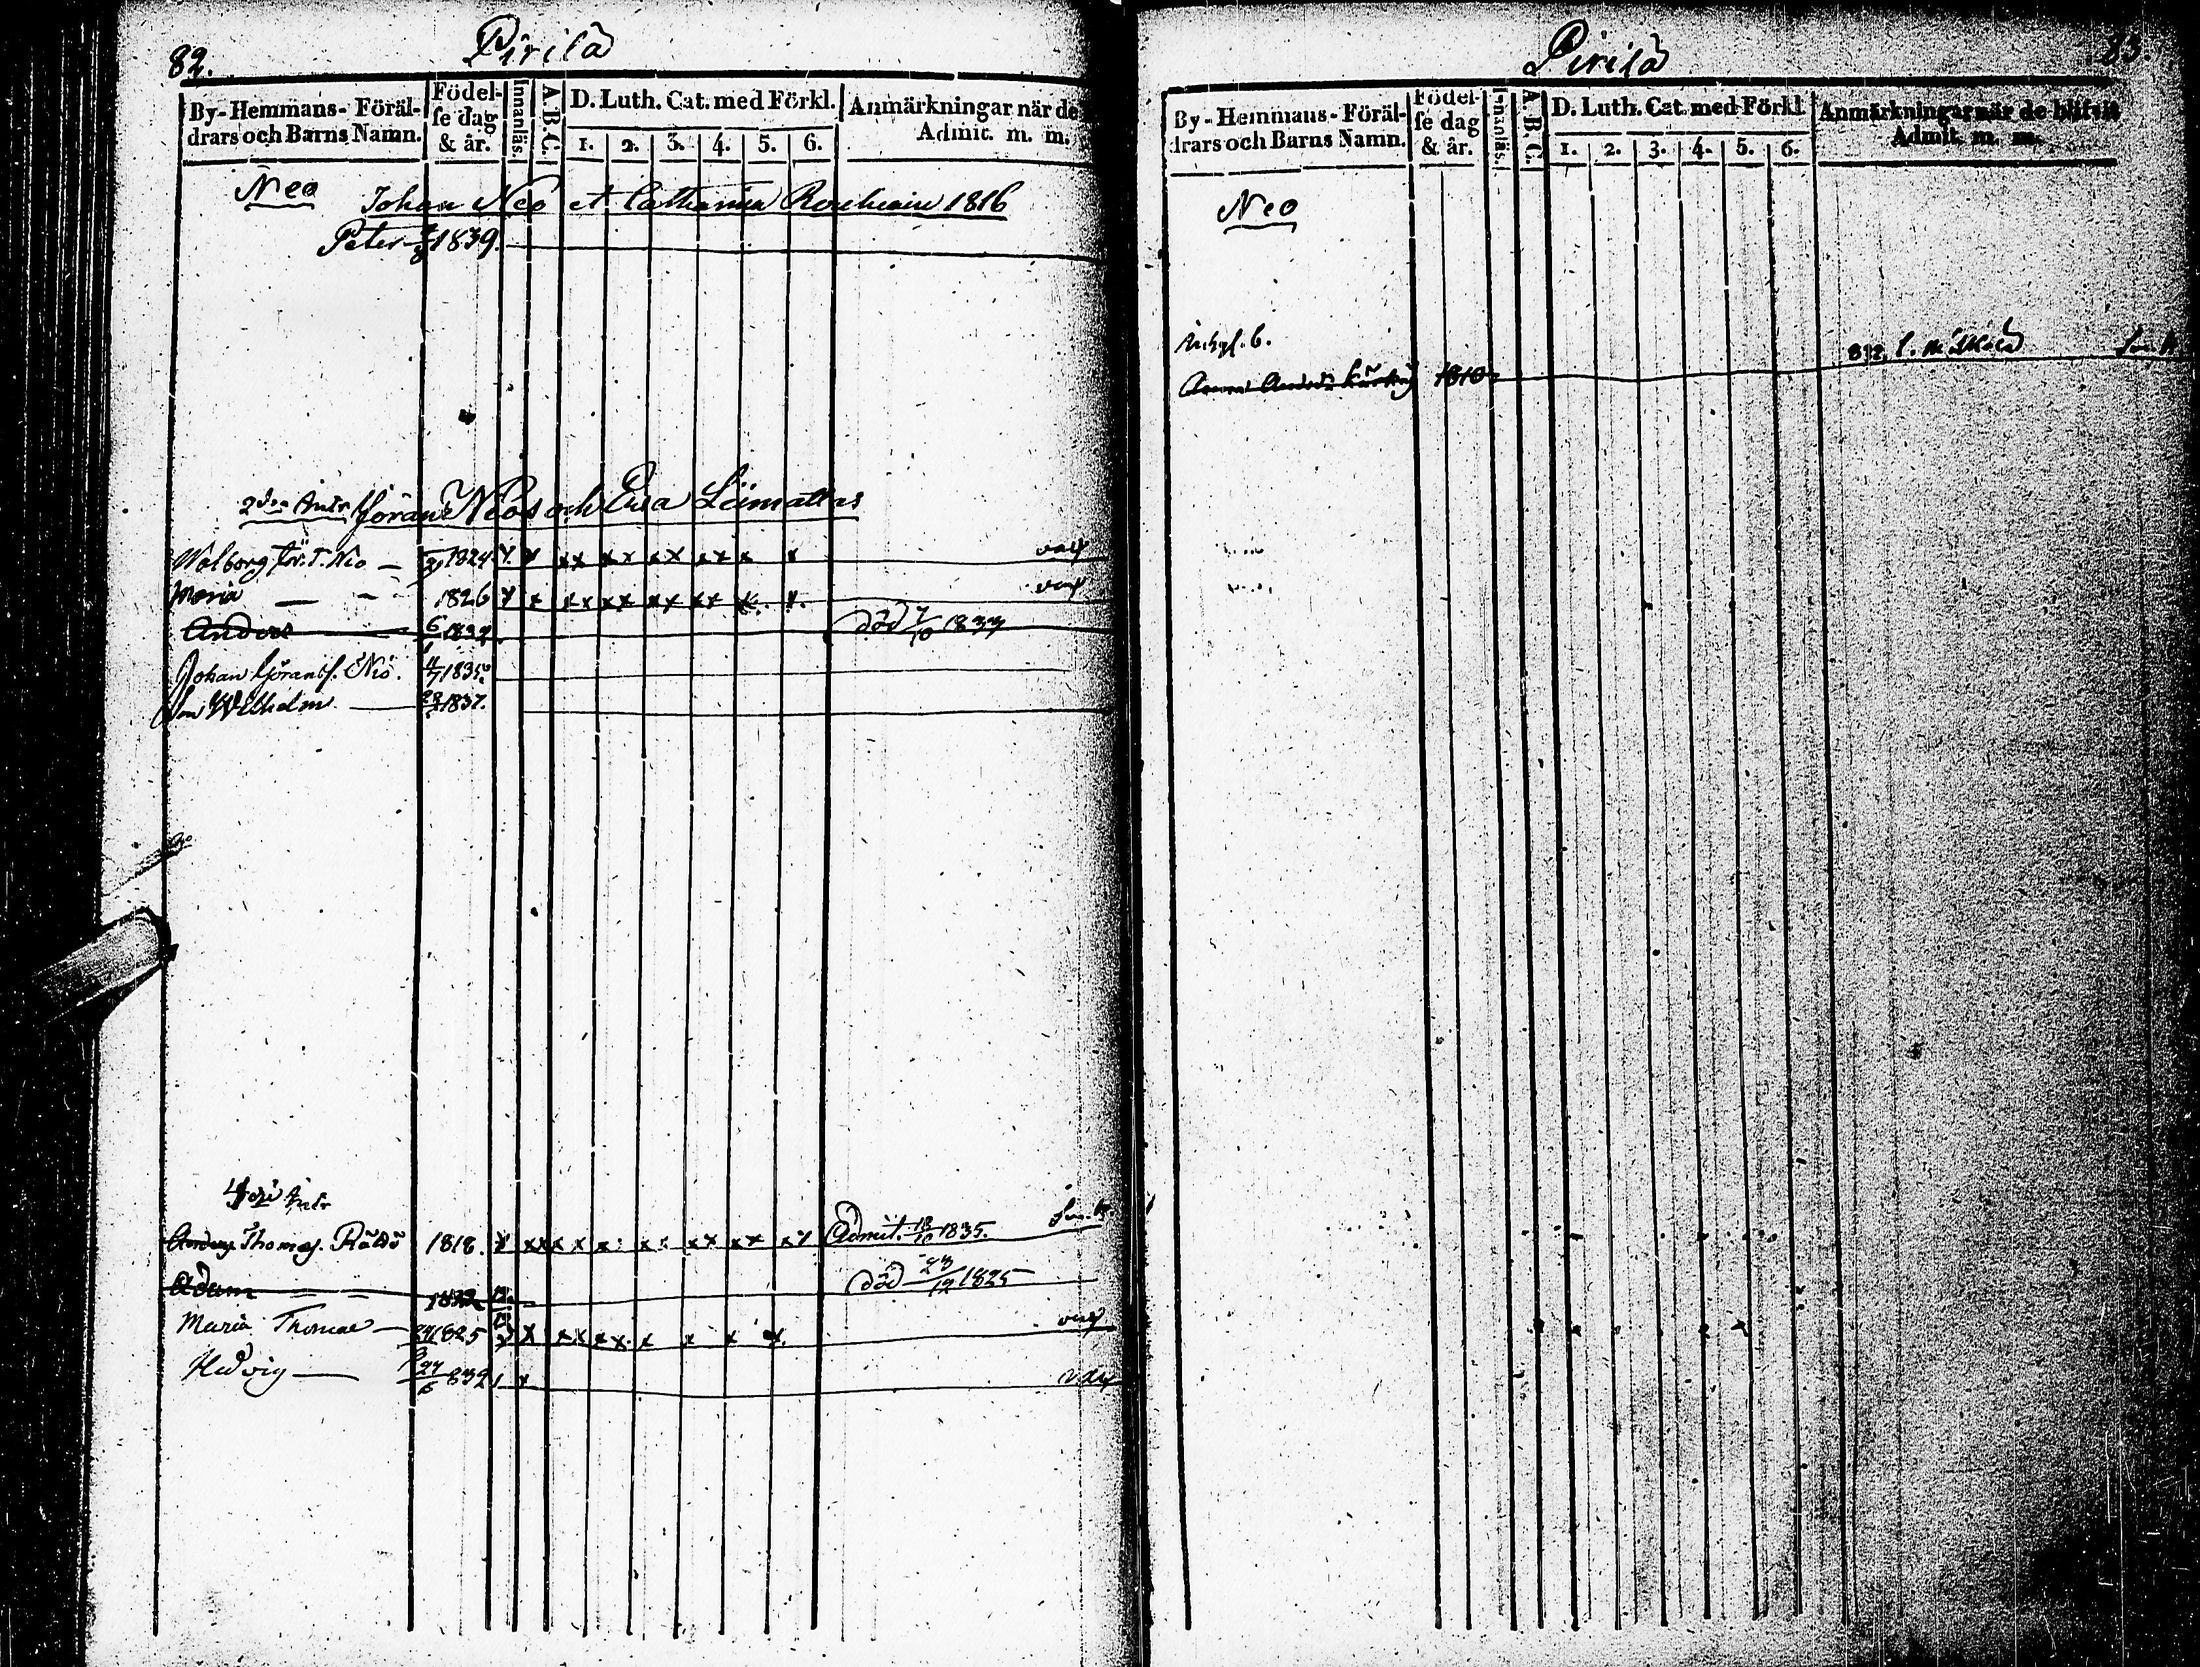 82.
Pirilä
By-Hemmans-Föräl-
drars och Barns Namn.
Födel-
se dag
& år.
Innanläs.
A.B.C.
D. Luth. Cat. med Förkl.
1. 2. 3. 4. 5. 6.
Anmärkningar när de
Admit. m. m.
Neo
Johan Neo et Catharina 1816
Peter 1839.
Göran Neos och Lisa
Walborg Gör. T. Neo 1824 x x xx x x x x x x x x vax
Maria 1826 x x x x xx xx xx x x. vax
Anders 6 1832 död 7/10 1833
Johan Göransf. Neo. 4/7 1835.
Wilhelm 1837.
Anders Thomas. 1818. x xxx x x x x xx xx x x Admit. 18/10 1835.
Adam 1822 död 23/12 1825
Maria Thomae 1825 x x xx x x x x x x. vax
Hedvig 27/6 832 x vax
83.
Pirilä
By-Hemmans-Föräl-
drars och Barns Namn.
Födel-
se dag
& år.
Innanläs.
A.B.C.
D. Luth. Cat. med Förkl.
1. 2. 3. 4. 5. 6.
Anmärkningar när de blifvit
Admit. m. m.
Neo
1810